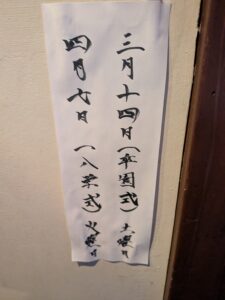 三月十四日(卒園式)土曜日
四月七日 入学式)火曜日